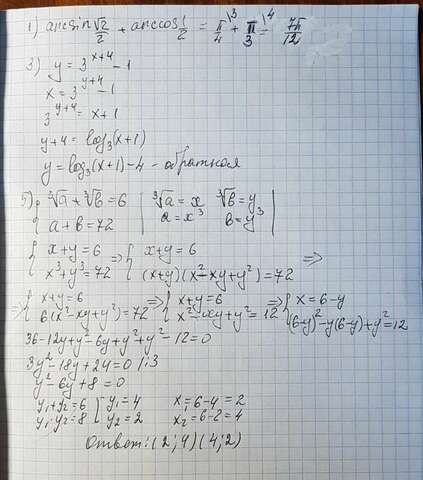 1) arcsin √2/2 + arccos 1/2 = π/4 \3 + π/3 \4 = 7π/12
3) y = 3^(x+4) - 1
x = 3^(y+4) - 1
3^(y+4) = x + 1
y+4 = log₃(x+1)
y = log₃(x+1) - 4 - обратная
5) { ∛a + ∛b = 6 | ∛a = x ∛b = y |
a + b = 72 | a = x³ b = y³ |
{ x+y = 6 ⇒ { x+y = 6 ⇒
x³+y³ = 72 (x+y)(x²-xy+y²) = 72
⇒ { x+y = 6 ⇒ { x+y = 6 ⇒ { x = 6-y
6(x²-xy+y²) = 72 x²-xy+y² = 12 (6-y)²-y(6-y)+y² = 12
36-12y+y²-6y+y²+y²-12 = 0
3y²-18y+24 = 0 /:3
y²-6y+8 = 0
y₁+y₂ = 6 { y₁ = 4 x₁ = 6-4 = 2
y₁·y₂ = 8 y₂ = 2 x₂ = 6-2 = 4
Ответ: (2;4) (4;2)